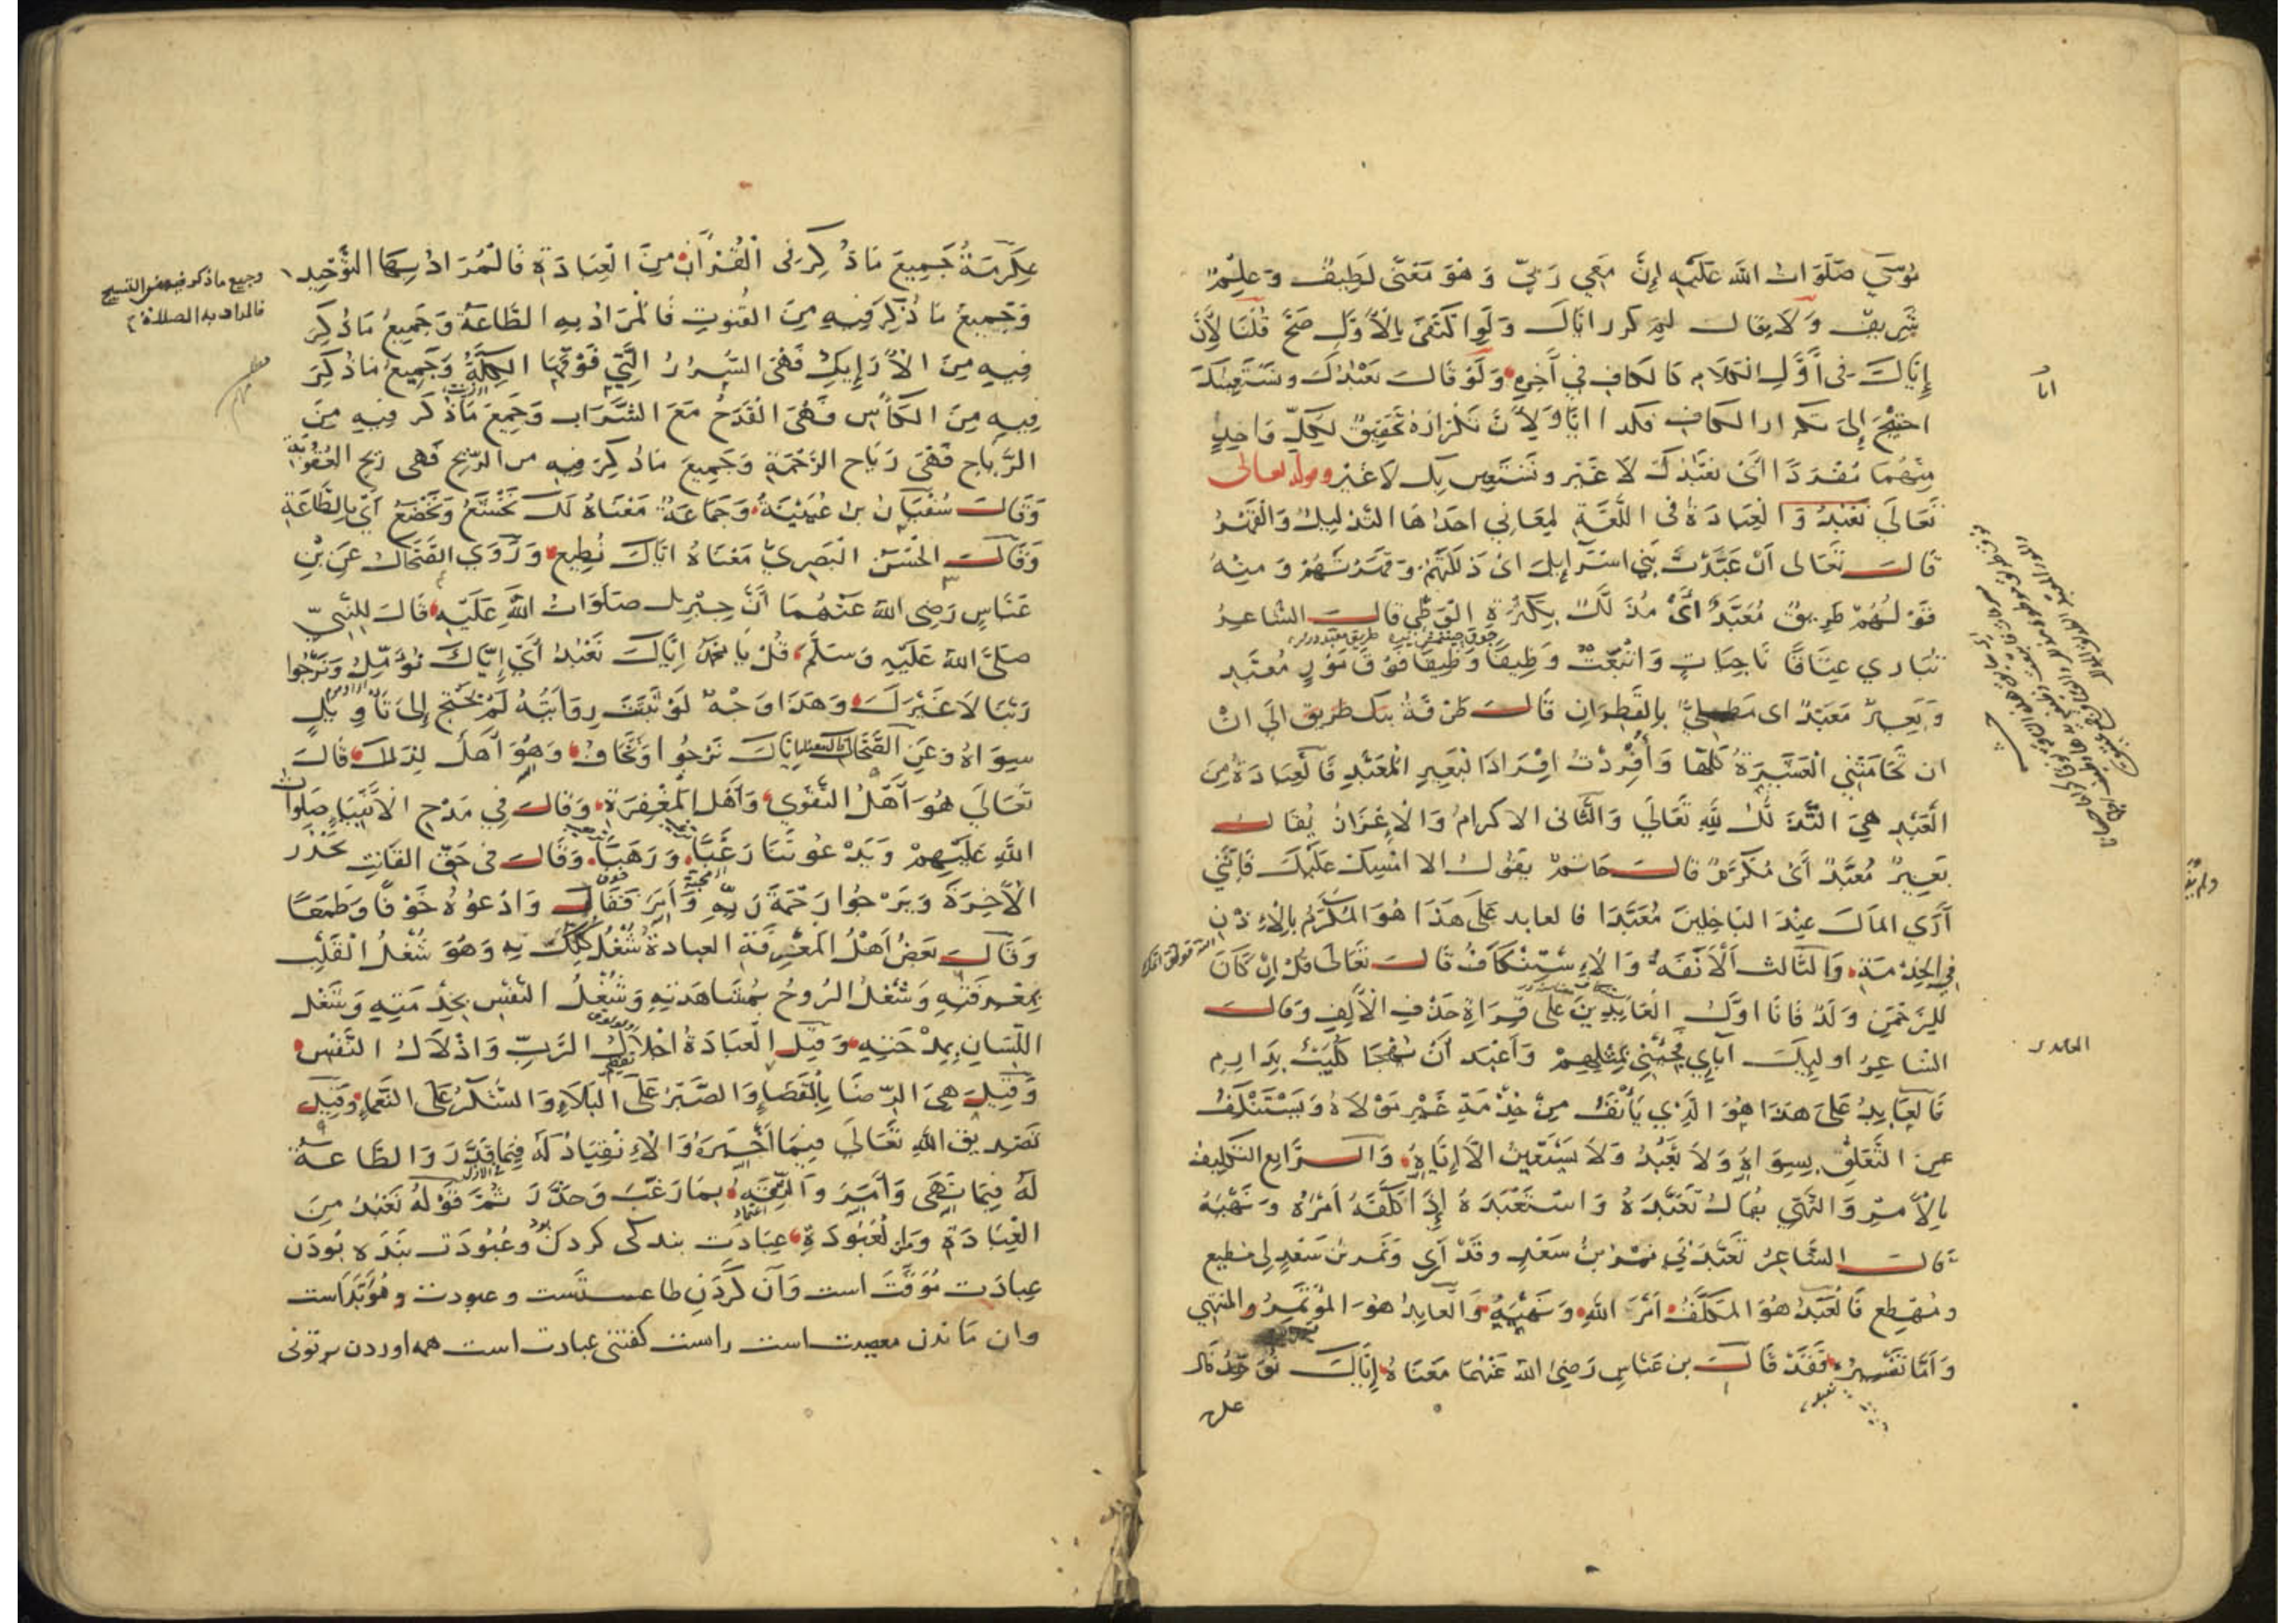 موسى صَلَوَات الله عَلَيْهِ إنَّ مَعِي رَبِّي وَهُوَ مَعْنَى لَطِيفٌ وَعِلْمٌ
شَرِيفٌ وَلَا يقال لِمَ كرر اياك وَلَو اكْتَفَى بِالْأَوَّلِ صَحَّ قُلْنَا لِأَنَّ
إِيَّاكَ فى أَوَّلِ الكَلَامِ كالكاف في آخِرِهِ وَلَوْ قَالَ نَعْبُدُكَ ونَسْتَعِينُكَ
احتِيجَ إلى تكرار الكاف فكذا ايَّا وَلِأَنَّ تَكْرَارَهُ تَحْقِيقٌ لِكُلِّ وَاحِدٍ
مِنْهُمَا مُفْرَدًا أَىْ نَعْبُدُكَ لَا غَيْر ونَسْتَعِين بِكَ لَا غَيْر وقوله تعالى
تَعَالَى نَعْبُدُ وَالْعِبَادَةُ فى اللُّغَةِ لِمَعَانِي احدَاهَا التَّذْلِيلُ وَالْقَهْرُ
قَالَ تَعَالى أَنْ عَبَّدْتَ بَنِي اسْرَائِيلَ اىْ ذَلَّلْتَهُمْ وَقَهَرْتَهُمْ وَمِنْهُ
قَوْلُهُمْ طَرِيقٌ مُعَبَّدٌ أَىْ مُذَلَّلٌ بِكَثْرَةِ الْوَطْيِ قَالَ الشَّاعِرُ
تُبَارِي عِتَاقًا نَاجِيَاتٍ وَاتْبَعَتْ وَظِيفًا وَظِيفًا فَوْقَ مَوْرٍ مُعَبَّدِ
وَبَعِيرٌ مُعَبَّدٌ اى مَطْلِيٌّ بِالْقَطِرَانِ قَالَ طَرَفَةُ إلَى انْ
ان تَحَامَتْنِي الْعَشِيرَةُ كُلُّهَا وَأُفْرِدْتُ اِفْرَادَ الْبَعِيرِ الْمُعَبَّدِ فَالْعِبَادَةُ مِنَ
الْعَبْدِ هِيَ التَّذَلُّلُ لِلَّهِ تَعَالَى وَالثَّانى الاكرامُ وَالْإِعْزَازُ يُقَالُ
بَعِيرٌ مُعَبَّدٌ أَىْ مُكَرَّمٌ قَالَ حَاتِمٌ يَقُولُ الا امْسِكْ عَلَيْكَ فَإِنَّنِي
أَرَى المَالَ عِنْدَ البَاخِلِينَ مُعَبَّدَا فالعابد عَلَى هَذَا هُوَ المُكَرَّمُ بِالْإِذْنِ
فِي الخِدْمَةِ وَالثَّالث الْأَنَفَةُ وَالْاسْتِنْكَافُ قَالَ تَعَالَى قُلْ إِنْ كَانَ
لِلرَّحْمَنِ وَلَدٌ فَانَا اوَّلُ الْعَابِدِينَ عَلَى قِرَاةِ حَذْفِ الْأَلِفِ وَقَالَ
الشاعِرُ اوليِكَ آبَايِ فَجِئْنِي بِمِثْلِهِمْ وَأَعْبَدُ أَنْ تُهْجَا كُلَيْبٌ بِدَارِمِ
فَالْعَابِدُ عَلَى هَذَا هُوَ الَّذِي يَأْنَفُ مِنْ خِدْمَةِ غَيْرِ مَوْلَاهُ وَيَسْتَنْكِفُ
عَنِ التَّعَلُّقِ بِسِوَاهُ وَلَا يَعْبُدُ وَلَا يَسْتَعِينُ الَّا إِيَّاهُ وَالرَّابِع التَّكْلِيفُ
بِالْأَمْرِ وَالنَّهْيِ يقَالُ تَعَبَّدَهُ وَاسْتَعْبَدَهُ إِذَا كَلَّفَهُ أَمْرَهُ وَنَهْيَهُ
قَالَ الشَّاعِرُ تَعَبَّدَنِي نِمْرُ بنُ سَعْدٍ وقَدْ أَرَى وَنِمْرُ بنُ سَعْدٍ لِى مُطِيع
ومُهْطِع فَالْعَبْدُ هُوَ المكَلَّفُ أَمْرَ اللهِ وَنَهْيَهُ وَالْعَابِدُ هُوَ المُؤْتَمِرُ والمُنْتَهِي
وَأَمَّا تَفْسِيرُهُ فَقَدْ قَالَ بن عَبَّاسٍ رَضِيَ اللهُ عَنْهُمَا مَعْنَاهُ إِيَّاكَ نُوَحِّدُ قال
عكر
عِكْرِمَةُ جَمِيعَ مَا ذُكِرَ فى الْقُرْآنِ مِنَ الْعِبَادَةِ فَالْمُرَادُ بِهَا التَّوْحِيد
وَجَمِيعُ مَا ذُكِرَ فِيهِ مِنَ القُنُوتِ فَالْمرَادُ بِهِ الطَّاعَةُ وَجَمِيعُ مَا ذُكِرَ
فِيهِ مِنَ الْأَرَائِكِ فَهْيَ السُّرُرُ الَّتِي فَوْقَهَا الكِلَّةُ وَجَمِيعُ مَا ذُكِرَ
فِيهِ مِنَ الكَأْسِ فَهْيَ الْقَدَحُ مَعَ الشَّرَابِ وَجَمِيعَ مَا ذُكر فِيهِ مِنَ
الرِّيَاحِ فَهْيَ رِيَاح الرَّحْمَةِ وَجَمِيعَ مَا ذُكِرَ فِيهِ من الرِّيح فَهى رِيح العُقُوبَة
وَقَالَ سُفْيَانُ بنُ عُيَيْنَةَ وَجَمَاعَةٌ مَعْنَاهُ لَكَ نَخْشَعُ وَنَخْضَعُ أَيْ بِالطَّاعَةِ
وَقَالَ الْحَسَنُ البَصَرِيُّ مَعْنَاهُ ايَّاكَ نُطِيع وَرَوَى الضَّحَّاكُ عَنِ بْنِ
عَبَّاسٍ رَضِى اللهُ عَنْهُمَا أَنَّ جِبْرِيل صَلَوَاتُ اللهِ عَلَيْهِ قَالَ لِلنَّبِيِّ
صَلَّى اللهُ عَلَيْهِ وَسَلَّمَ قُلْ يَا مُحَمَّدُ إِيَّاكَ نَعْبُدُ أَيْ إِيَّاكَ نُؤَمِّلُ وَنَرْجُوا
رَبَّنَا لَا غَيْرَكَ وَهَذَا وَجْهٌ لَوْ ثَبَتَتْ رِوَايَتُهُ لَمْ يَحْتَجْ إلَى تَأْوِيلٍ
سِوَاهُ وَعَنِ الضَّحَّاكِ إِيَّاكَ نَرْجُوا وَنَخَافُ وَهُوَ أَهْلٌ لِذَلكَ قَالَ
تَعَالَى هُوَ أَهْلُ التَّقْوَى وَأَهْلُ الْمَغْفِرَةِ وَقَالَ فِي مَدْحِ الْأَنْبِيَاءِ صَلَوَاتُ
اللهِ عَلَيْهِمْ وَيَدْعُونَنَا رَغَبًا وَرَهَبًا وَقَالَ فى حَقِّ القَانِتِ يَحْذَرُ
الْآخِرَةَ وَيَرْجُوا رَحْمَةَ رَبِّهِ وَأَمَرَ فَقَالَ وَادْعُوهُ خَوْفًا وَطَمَعًا
وَقَالَ بَعْضُ أَهْلُ الْمَعْرِفَةِ العِبَادَةُ شُغْلُ كُلِّكَ بِهِ وَهُوَ شُغْلُ الْقَلْبِ
بِمَعْرِفَتِهِ وَشُغْلُ الرُوحُ بِمُشَاهَدَتِهِ وَشُغْلُ النَّفْسِ بِخِدْمَتِهِ وَشُغْلُ
اللِّسَانِ بِمِدْحَتِهِ وَقِيلَ الْعِبَادَةُ اجْلَالُ الرَّبِّ وَاذْلَالُ النَّفْسِ
وَقِيلَ هِيَ الرِّضَا بِالْقَضَاءِ وَالصَّبْرُ عَلَى الْبَلَاءِ وَالشُّكْرُ عَلَى النَّعْمَاءِ وَقِيلَ
تَصْدِيق اللهِ تَعَالَى فِيمَا أَخْبَرَ وَالْاِنْقِيَادُ لَهُ فِيمَا قَدَّرَ وَالطَّاعَةُ
لَهُ فِيمَا نَهَى وَأَمَرَ وَالثِّقَةُ بِمَا رَغَّبَ وَحَذَّرَ ثُمَّ قَوْلُهُ نَعْبُدُ مِنَ
الْعِبَادَةِ وَمِنَ الْعُبُودَةِ عِبَادَت بندگى كردن وعُبُودَت بَنْدَه بُودَن
عِبَادَت مُوَقَّتَ است وَآن كَرْدَنِ طاعتست وعبودت مُؤَبَّد است
وان مَاندن معصيت است راست كفتنى عبادت است همه اوردن
وجميع ما ذكر فيه من التسبيح
فالمراد به الصلاة